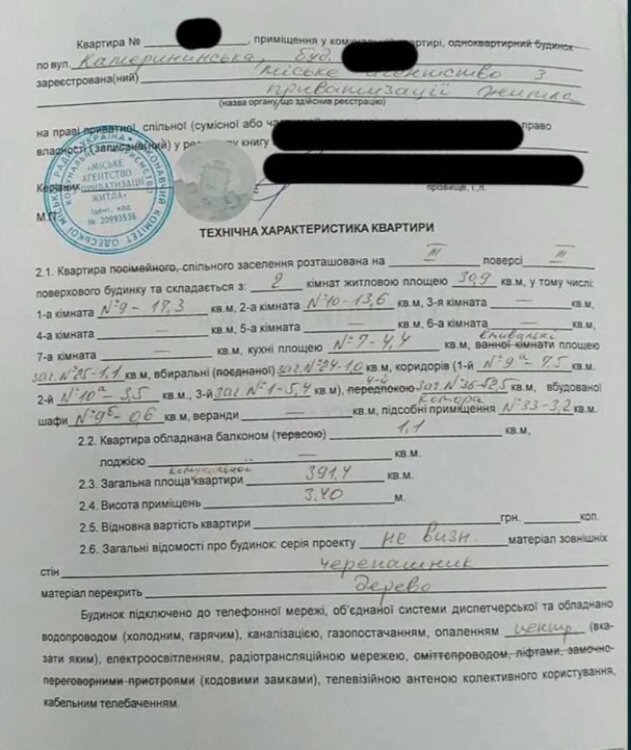 Квартира № , приміщення у комунальній квартирі, одноквартирний будинок
по вул. Катерининська, буд.
зареєстрована(ний) Міське агентство з
приватизації житла
(назва органу, що здійснив реєстрацію)
на праві приватної, спільної (сумісної або час право
власності (записана(ний) у реєстрову книгу
Керівник
прізвище, і.п.
М.П.
УКРАЇНА ВИКОНАВЧИЙ КОМІТЕТ ОДЕСЬКОЇ МІСЬКОЇ РАДИ
«МІСЬКЕ
АГЕНТСТВО
ПРИВАТИЗАЦІЇ
ЖИТЛА»
Ідент. код
№ 20993536
ТЕХНІЧНА ХАРАКТЕРИСТИКА КВАРТИРИ
2.1. Квартира посімейного, спільного заселення розташована на III поверсі III
поверхового будинку та складається з: 2 кімнат житловою площею 30,9 кв.м, у тому числі:
1-а кімната №9 - 17,3 кв.м, 2-а кімната №10 - 13,6 кв.м, 3-я кімната — кв.м,
4-а кімната — кв.м, 5-а кімната — кв.м, 6-а кімната — кв.м,
7-а кімната — кв.м, кухні площею №7 - 4,4 кв.м, ванної кімнати площею
заг. №25 - 1,1 кв.м, вбиральні (поєднаної) заг. №24 - 1,0 кв.м, коридорів (1-й №9а - 7,5 кв.м.
2-й №10а - 3,5 кв.м., 3-й заг. №1 - 5,4 кв.м), 4-й передпокою заг. №36 - 52,5 кв.м, вбудованої
шафи №9б - 0,6 кв.м, веранди — кв.м, комора підсобні приміщення №33 - 3,2 кв.м.
2.2. Квартира обладнана балконом (терасою) 1,1 кв.м,
лоджією — кв.м.
комунальної
2.3. Загальна площа квартири 391,4 кв.м.
2.4. Висота приміщень 3.40 м.
2.5. Відновна вартість квартири грн. коп.
2.6. Загальні відомості про будинок: серія проекту не визн. матеріал зовнішніх
стін черепашник
матеріал перекрить дерево
Будинок підключено до телефонної мережі, об'єднаної системи диспетчерської та обладнано
водопроводом (холодним, гарячим), каналізацією, газопостачанням, опаленням центр. (вка-
зати яким), електроосвітленням, радіотрансляційною мережею, сміттєпроводом, ліфтами, замочно-
переговорними пристроями (кодовими замками), телевізійною антеною колективного користування,
кабельним телебаченням.